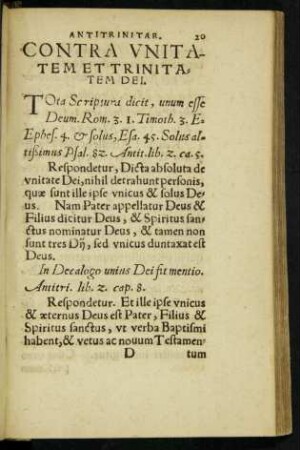 ANTITRINITAR. 20
CONTRA VNITA-
TEM ET TRINITA,
TEM DEI.
TOta Scriptura dicit, unum esse
Deum. Rom. 3. 1. Timoth. 3. E-
Ephes. 4. & solus, Esa. 45. Solus al-
tissimus Psal. 82. Antit. lib. 2. ca. 5.
Respondetur, Dicta absoluta de
vnitate Dei, nihil detrahunt personis,
quæ sunt ille ipse vnicus & solus De-
us. Nam Pater appellatur Deus &
Filius dicitur Deus, & Spiritus san-
ctus nominatur Deus, & tamen non
sunt tres Dij, sed vnicus duntaxat est
Deus.
In Decalogo unius Dei fit mentio.
Antitri. lib. 2. cap. 8.
Respondetur. Et ille ipse vnicus
& æternus Deus est Pater, Filius &
Spiritus sanctus, vt verba Baptismi
habent, & vetus ac nouum Testamen-
D tum